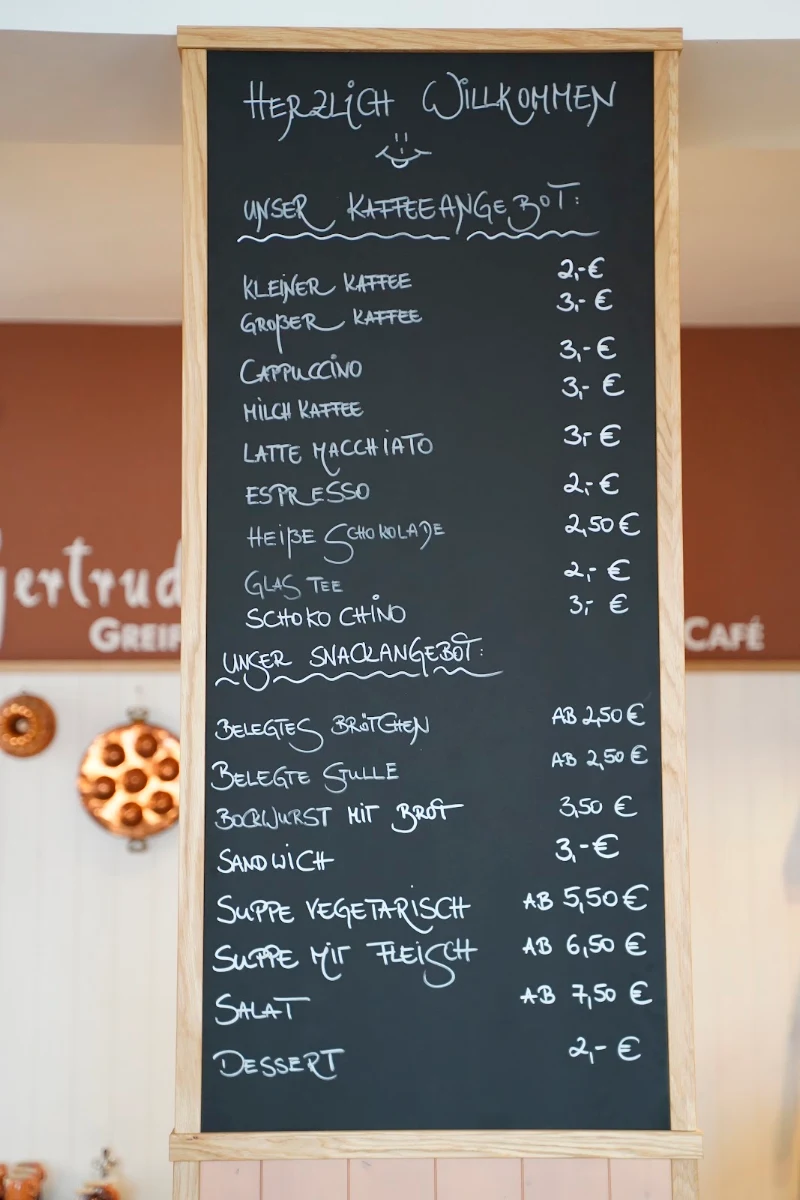 HERZLICH WILLKOMMEN
UNSER KAFFEEANGEBOT:
KLEINER KAFFEE 2,-€
GROßER KAFFEE 3,- €
CAPPUCCINO 3,- €
MILCH KAFFEE 3,- €
LATTE MACCHIATO 3,- €
ESPRESSO 2,- €
HEIßE SCHOKOLADE 2,50 €
GLAS TEE 2,- €
SCHOKO CHINO 3,- €
UNSER SNACKANGEBOT:
BELEGTES BRÖTCHEN AB 2,50 €
BELEGTE STULLE AB 2,50 €
BOCKWURST MIT BROT 3,50 €
SANDWICH 3,-€
SUPPE VEGETARISCH AB 5,50 €
SUPPE MIT FLEISCH AB 6,50 €
SALAT AB 7,50 €
DESSERT 2,- €
Gertrud
GREIF
CAFÉ